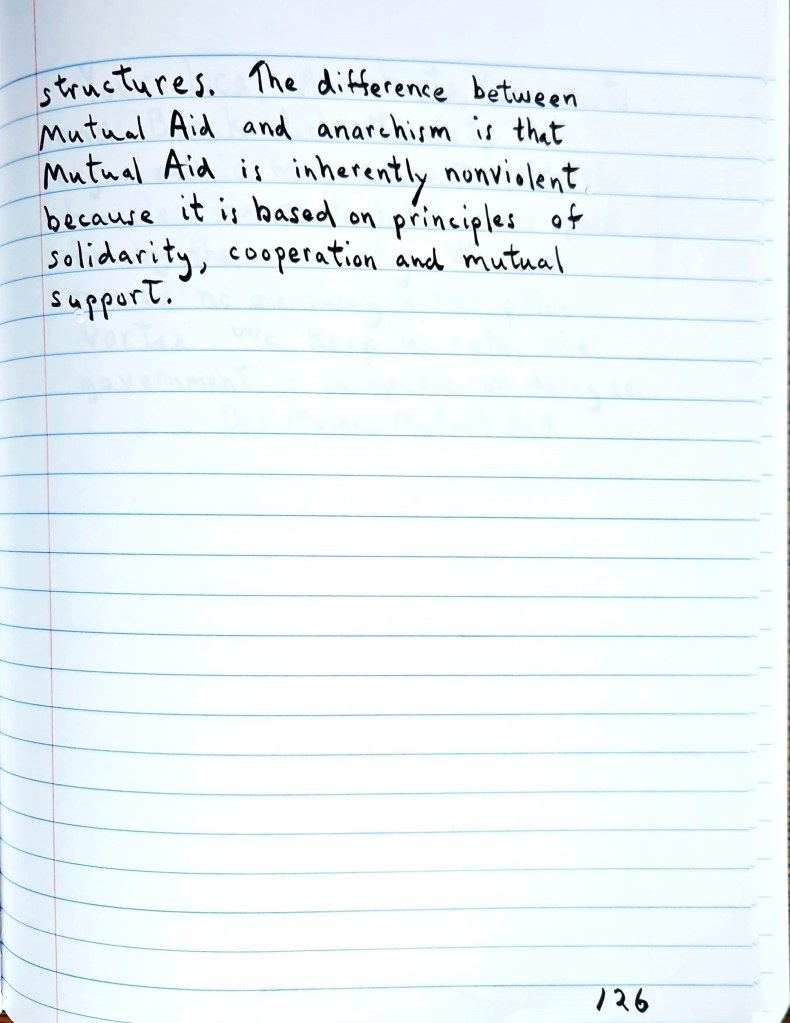 structures. The difference between
Mutual Aid and anarchism is that
Mutual Aid is inherently nonviolent
because it is based on principles of
solidarity, cooperation and mutual
support.
126